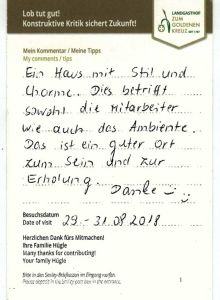 Lob tut gut!
Konstruktive Kritik sichert Zukunft!
LANDGASTHOF
ZUM
GOLDENEN
KREUZ
Mein Kommentar / Meine Tipps
My comments / tips
Ein Haus mit Stil und
Charme. Dies betrifft
sowohl die Mitarbeiter
wie auch das Ambiente.
Das ist ein guter Ort
zum Sein und zur
Erholung.
Danke
Besuchsdatum
Date of visit
29.-31.08 2018
Herzlichen Dank fürs Mitmachen!
Ihre Familie Hügle
Many thanks for contributing!
Your family Hügle
Bitte in den Smiley-Briefkasten im Eingang werfen.
Please deposit in the Smiley post box in the entrance.
1